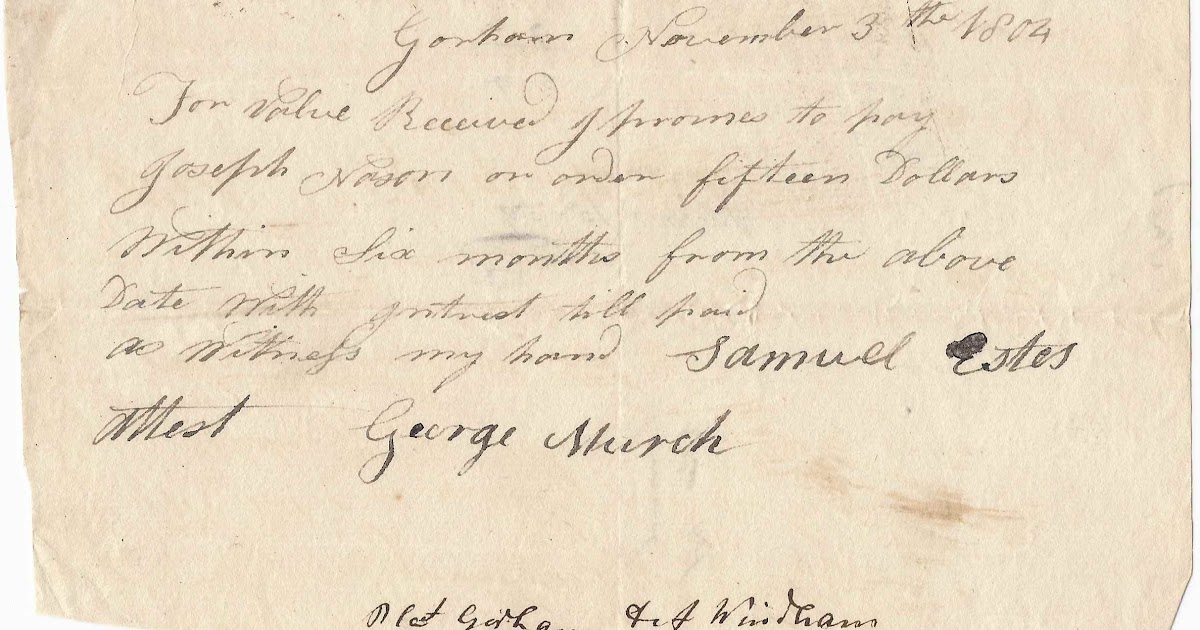 Gorham November 3th 1804
For Value Received I promes to pay
Joseph Nason or order fifteen Dollars
Within Six months from the above
Date With Intrest till paid
as Witness my hand Samuel Estes
Attest George Murch
Plet Gorham Deft Windham